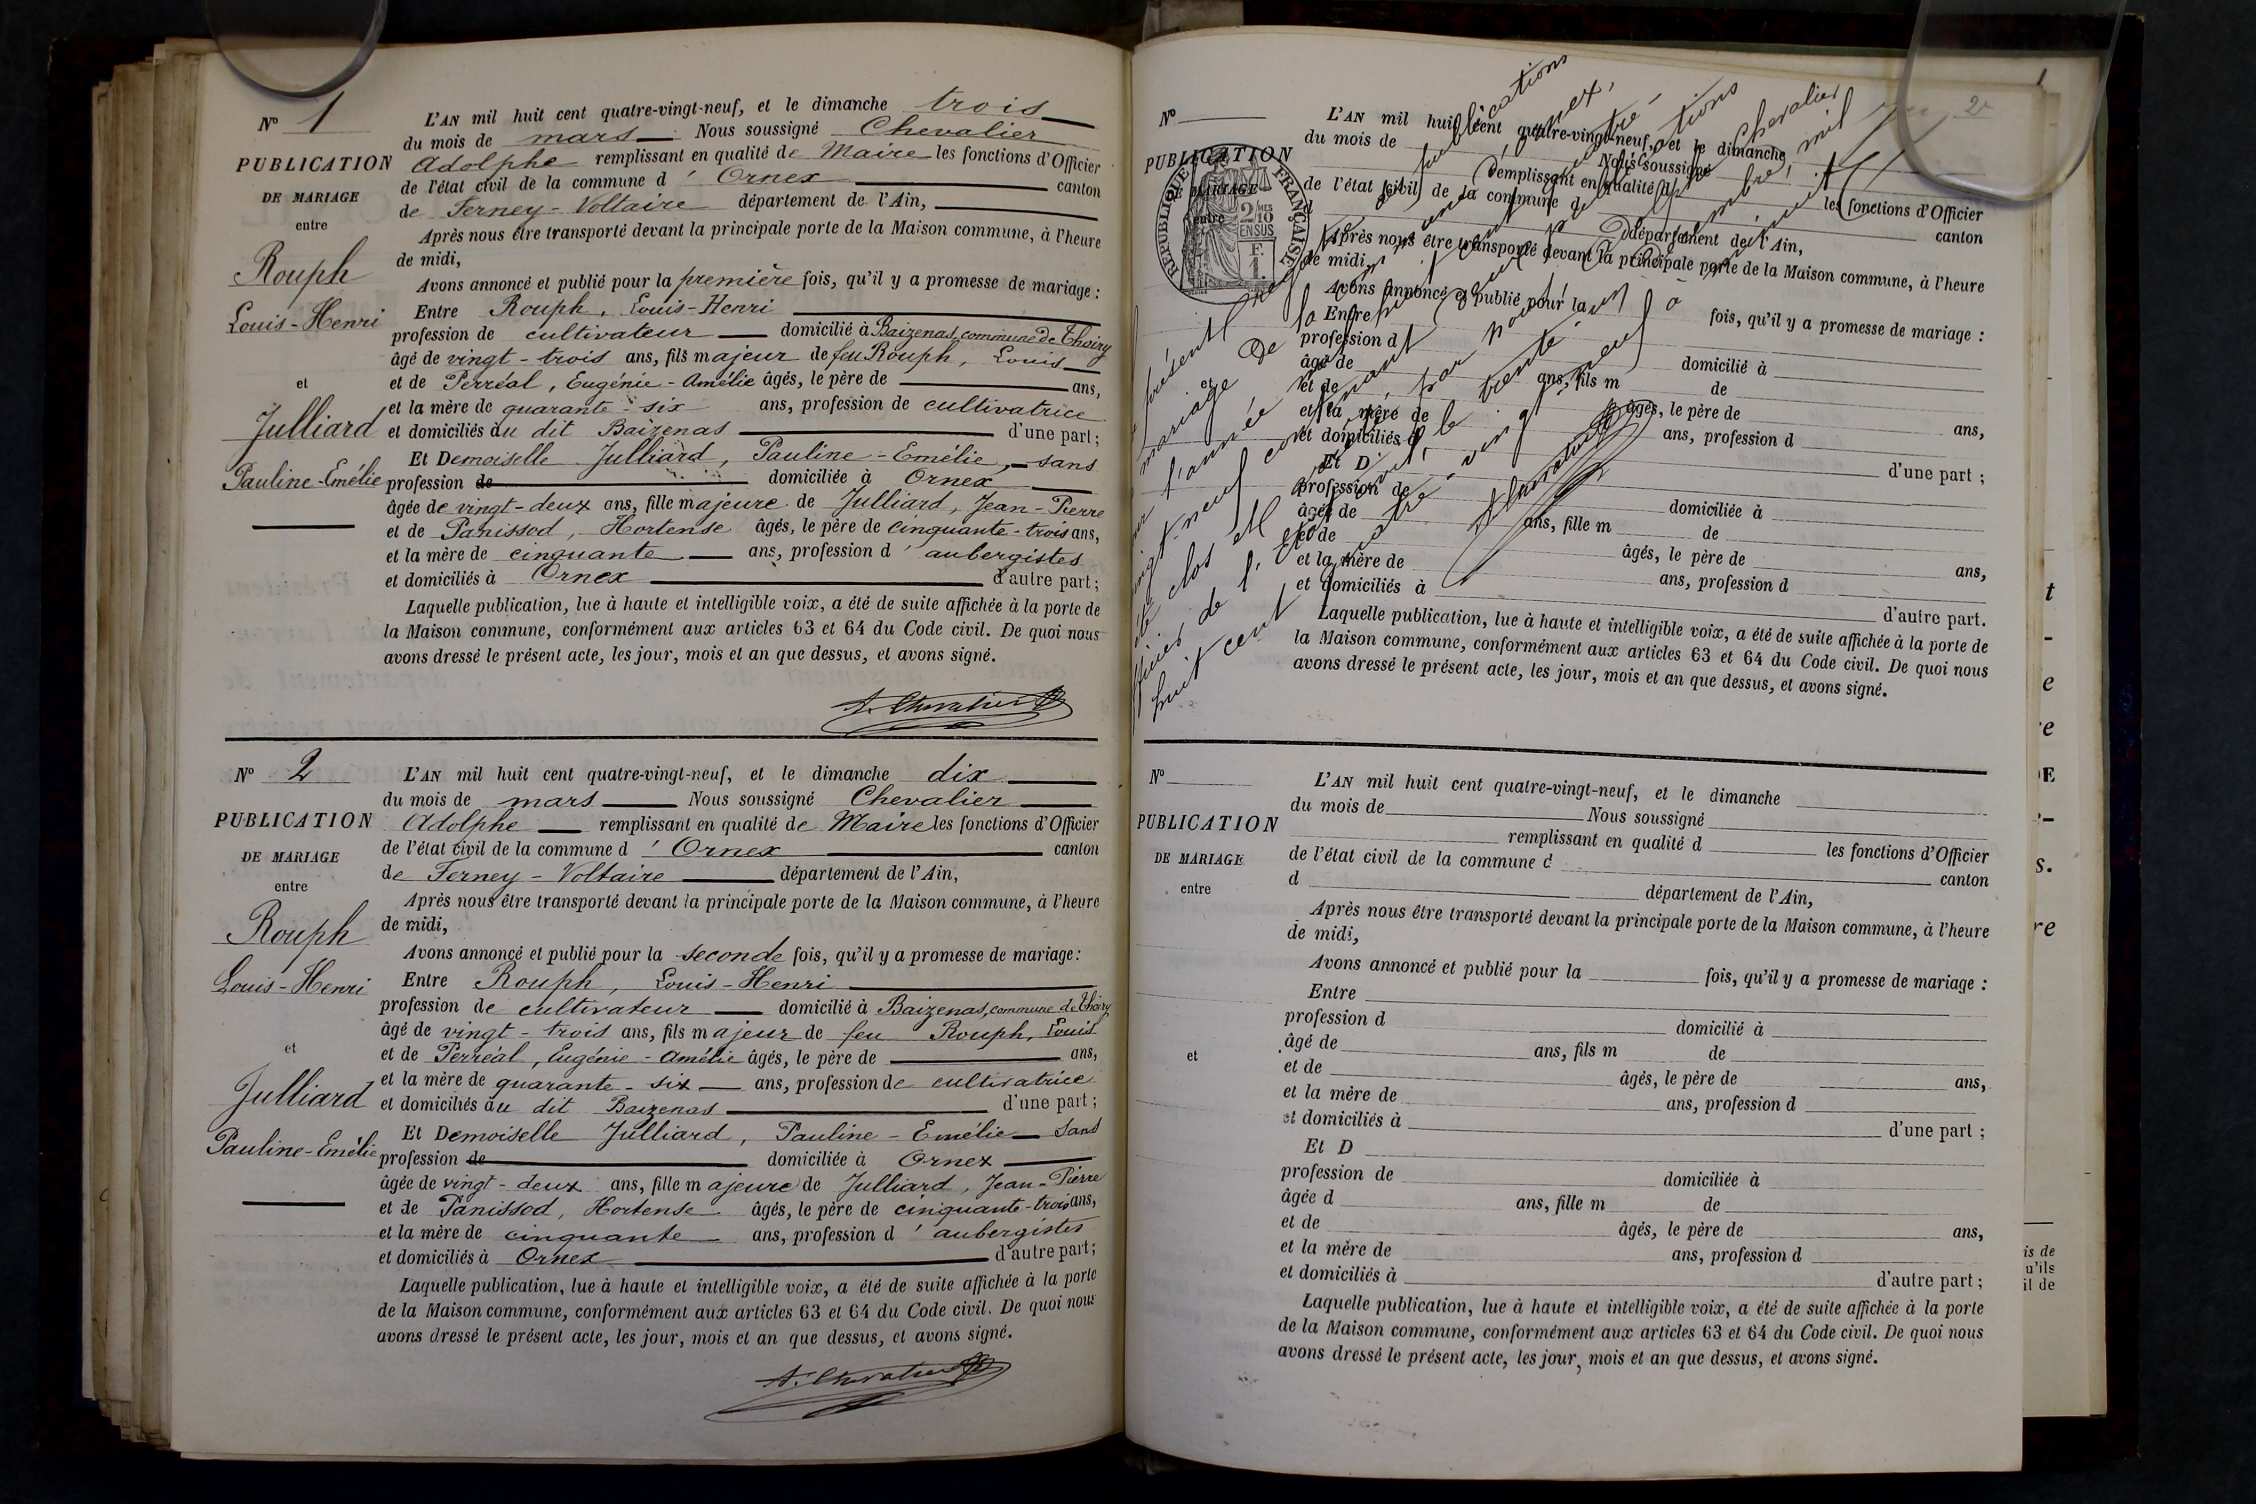 Nº 1
PUBLICATION
DE MARIAGE
entre
Rouph
Louis-Henri
et
Julliard
Pauline-Emélie
L'AN mil huit cent quatre-vingt-neuf, et le dimanche trois
du mois de mars Nous soussigné Chevalier
Adolphe remplissant en qualité de Maire les fonctions d'Officier
de l'état civil de la commune d'Ornex canton
de Ferney-Voltaire département de l'Ain,
Après nous être transporté devant la principale porte de la Maison commune, à l'heure
de midi,
Avons annoncé et publié pour la première fois, qu'il y a promesse de mariage :
Entre Rouph, Louis-Henri
profession de cultivateur domicilié à Baizenas, commune de Thoiry
âgé de vingt-trois ans, fils majeur de feu Rouph, Louis
et de Perréal, Eugénie-Amélie âgés, le père de ans,
et la mère de quarante-six ans, profession de cultivatrice
et domiciliés au dit Baizenas d'une part ;
Et Demoiselle Julliard, Pauline-Emélie, sans
profession de domiciliée à Ornex
âgée de vingt-deux ans, fille majeure de Julliard, Jean-Pierre
et de Panissod, Hortense âgés, le père de cinquante-trois ans,
et la mère de cinquante ans, profession d'aubergistes
et domiciliés à Ornex d'autre part ;
Laquelle publication, lue à haute et intelligible voix, a été de suite affichée à la porte de
la Maison commune, conformément aux articles 63 et 64 du Code civil. De quoi nous
avons dressé le présent acte, les jour, mois et an que dessus, et avons signé.
A. Chevalier
Nº 2
PUBLICATION
DE MARIAGE
entre
Rouph
Louis-Henri
et
Julliard
Pauline-Emélie
L'AN mil huit cent quatre-vingt-neuf, et le dimanche dix
du mois de mars Nous soussigné Chevalier
Adolphe remplissant en qualité de Maire les fonctions d'Officier
de l'état civil de la commune d'Ornex canton
de Ferney-Voltaire département de l'Ain,
Après nous être transporté devant la principale porte de la Maison commune, à l'heure
de midi,
Avons annoncé et publié pour la seconde fois, qu'il y a promesse de mariage :
Entre Rouph, Louis-Henri
profession de cultivateur domicilié à Baizenas, commune de Thoiry
âgé de vingt-trois ans, fils majeur de feu Rouph, Louis
et de Perréal, Eugénie-Amélie âgés, le père de ans,
et la mère de quarante-six ans, profession de cultivatrice
et domiciliés au dit Baizenas d'une part ;
Et Demoiselle Julliard, Pauline-Emélie sans
profession de domiciliée à Ornex
âgée de vingt-deux ans, fille majeure de Julliard, Jean-Pierre
et de Panissod, Hortense âgés, le père de cinquante-trois ans,
et la mère de cinquante ans, profession d'aubergistes
et domiciliés à Ornex d'autre part ;
Laquelle publication, lue à haute et intelligible voix, a été de suite affichée à la porte
de la Maison commune, conformément aux articles 63 et 64 du Code civil. De quoi nous
avons dressé le présent acte, les jour, mois et an que dessus, et avons signé.
A. Chevalier
2
Nº
PUBLICATION
DE MARIAGE
entre
et
RÉPUBLIQUE FRANÇAISE
2/10 MES
EN SUS
F.
1.
L'AN mil huit cent quatre-vingt-neuf, et le dimanche
du mois de Nous soussigné
remplissant en qualité d les fonctions d'Officier
de l'état civil de la commune d canton
d département de l'Ain,
Après nous être transporté devant la principale porte de la Maison commune, à l'heure
de midi,
Avons annoncé et publié pour la fois, qu'il y a promesse de mariage :
Entre
profession d domicilié à
âgé de ans, fils m de
et de âgés, le père de ans,
et la mère de ans, profession d
et domiciliés à d'une part ;
Et D
profession de domiciliée à
âgée de ans, fille m de
et de âgés, le père de ans,
et la mère de ans, profession d
et domiciliés à d'autre part.
Laquelle publication, lue à haute et intelligible voix, a été de suite affichée à la porte de
la Maison commune, conformément aux articles 63 et 64 du Code civil. De quoi nous
avons dressé le présent acte, les jour, mois et an que dessus, et avons signé.
présent registre des publications
mariage de la commune d'Ornex,
l'année mil huit cent quatre-
vingt-neuf contenant deux publications
clos et arrêté par nous, Adolphe Chevalier
de l'Etat civil, le trente un Décembre, mil
huit cent quatre-vingt-neuf à minuit
A. Chevalier
Nº
PUBLICATION
DE MARIAGE
entre
et
L'AN mil huit cent quatre-vingt-neuf, et le dimanche
du mois de Nous soussigné
remplissant en qualité d les fonctions d'Officier
de l'état civil de la commune d canton
d département de l'Ain,
Après nous être transporté devant la principale porte de la Maison commune, à l'heure
de midi,
Avons annoncé et publié pour la fois, qu'il y a promesse de mariage :
Entre
profession d domicilié à
âgé de ans, fils m de
et de âgés, le père de ans,
et la mère de ans, profession d
et domiciliés à d'une part ;
Et D
profession de domiciliée à
âgée d ans, fille m de
et de âgés, le père de ans,
et la mère de ans, profession d
et domiciliés à d'autre part ;
Laquelle publication, lue à haute et intelligible voix, a été de suite affichée à la porte
de la Maison commune, conformément aux articles 63 et 64 du Code civil. De quoi nous
avons dressé le présent acte, les jour, mois et an que dessus, et avons signé.